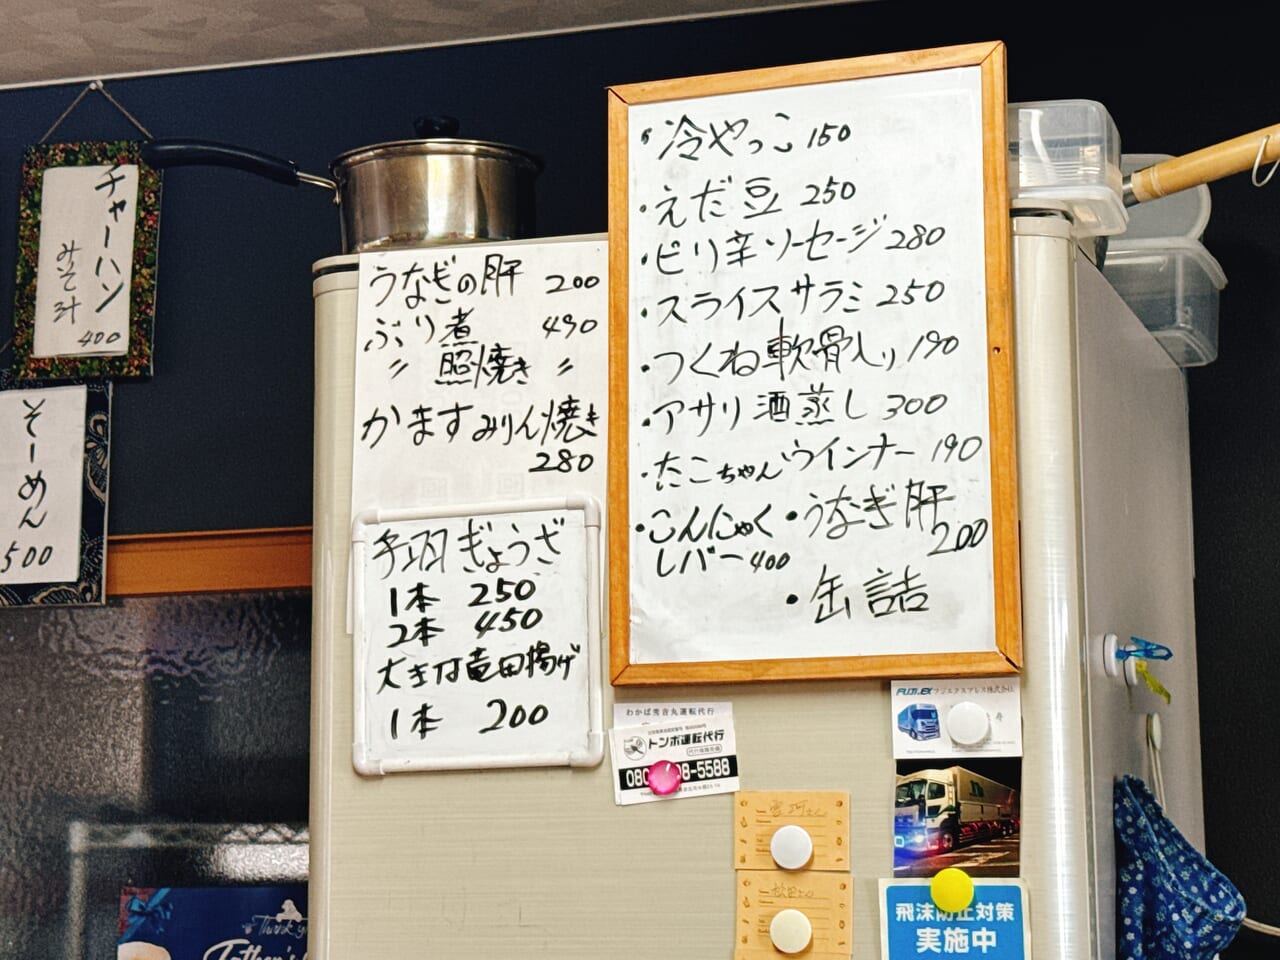 チャーハン
みそ汁
400
そーめん
500
うなぎの肝 200
ぶり煮 490
〃 照焼き 〃
かますみりん焼き
280
手羽ぎょうざ
1本 250
2本 450
大きな竜田揚げ
1本 200
・冷やっこ 150
・えだ豆 250
・ピリ辛ソーセージ 280
・スライスサラミ 250
・つくね軟骨入り 190
・アサリ酒蒸し 300
・たこちゃんウインナー 190
・こんにゃく
レバー 400
・うなぎ肝
200
・缶詰
わかば秀吉丸運転代行
トンボ運転代行
080 8-5588
FUJI EX フジエクスプレス株式会社
飛沫防止対策
実施中
Thank you
Father's